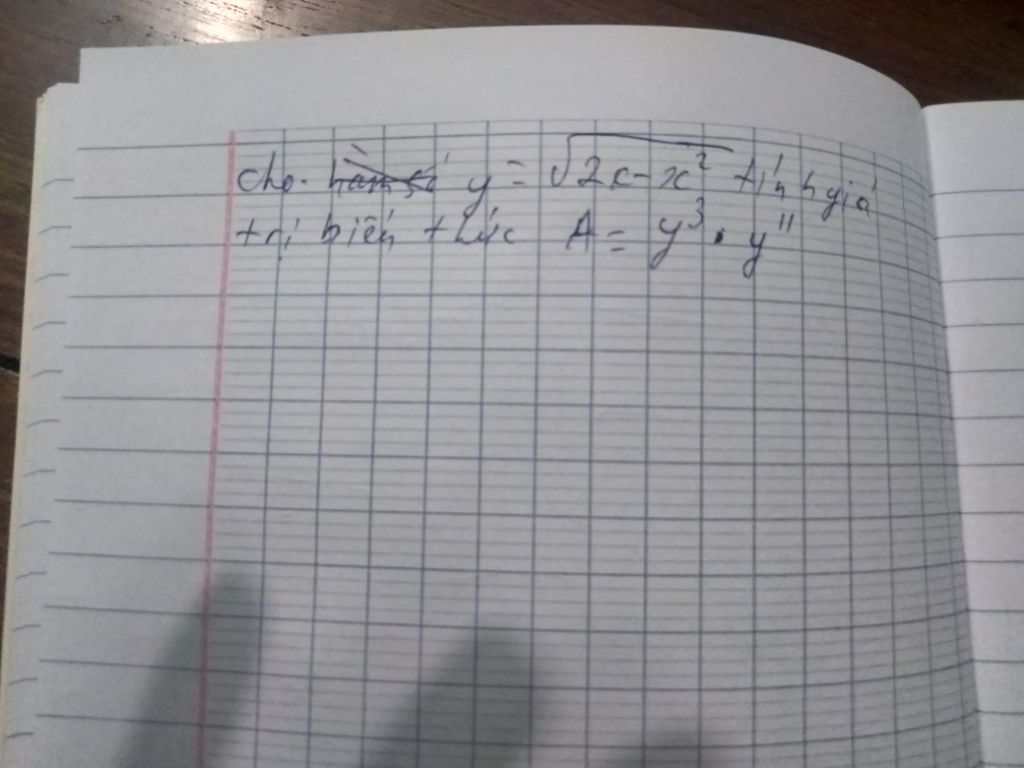 cho hàm số y = √2x - x² tính giá
trị biến thức A = y³ . y"